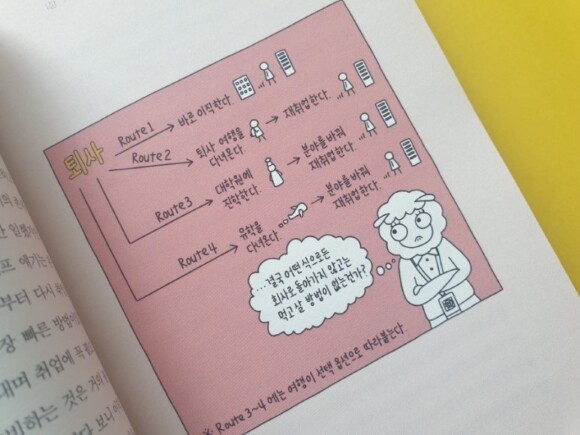 퇴사
Route 1
바로 이직한다.
Route 2
퇴사 여행을
다녀온다.
재취업한다.
Route 3
대학원에
진학한다.
분야를 바꿔
재취업한다.
Route 4
유학을
다녀온다.
분야를 바꿔
재취업한다.
...결국 어떤 식으로든
회사로 돌아가지 않고는
먹고 살 방법이 없는건가?
※ Route 3~4 에는 여행이 선택 옵션으로 따라붙는다.
얘기는
부터 다시
장 빠른 방법이
내며 취업에
비하는 것은